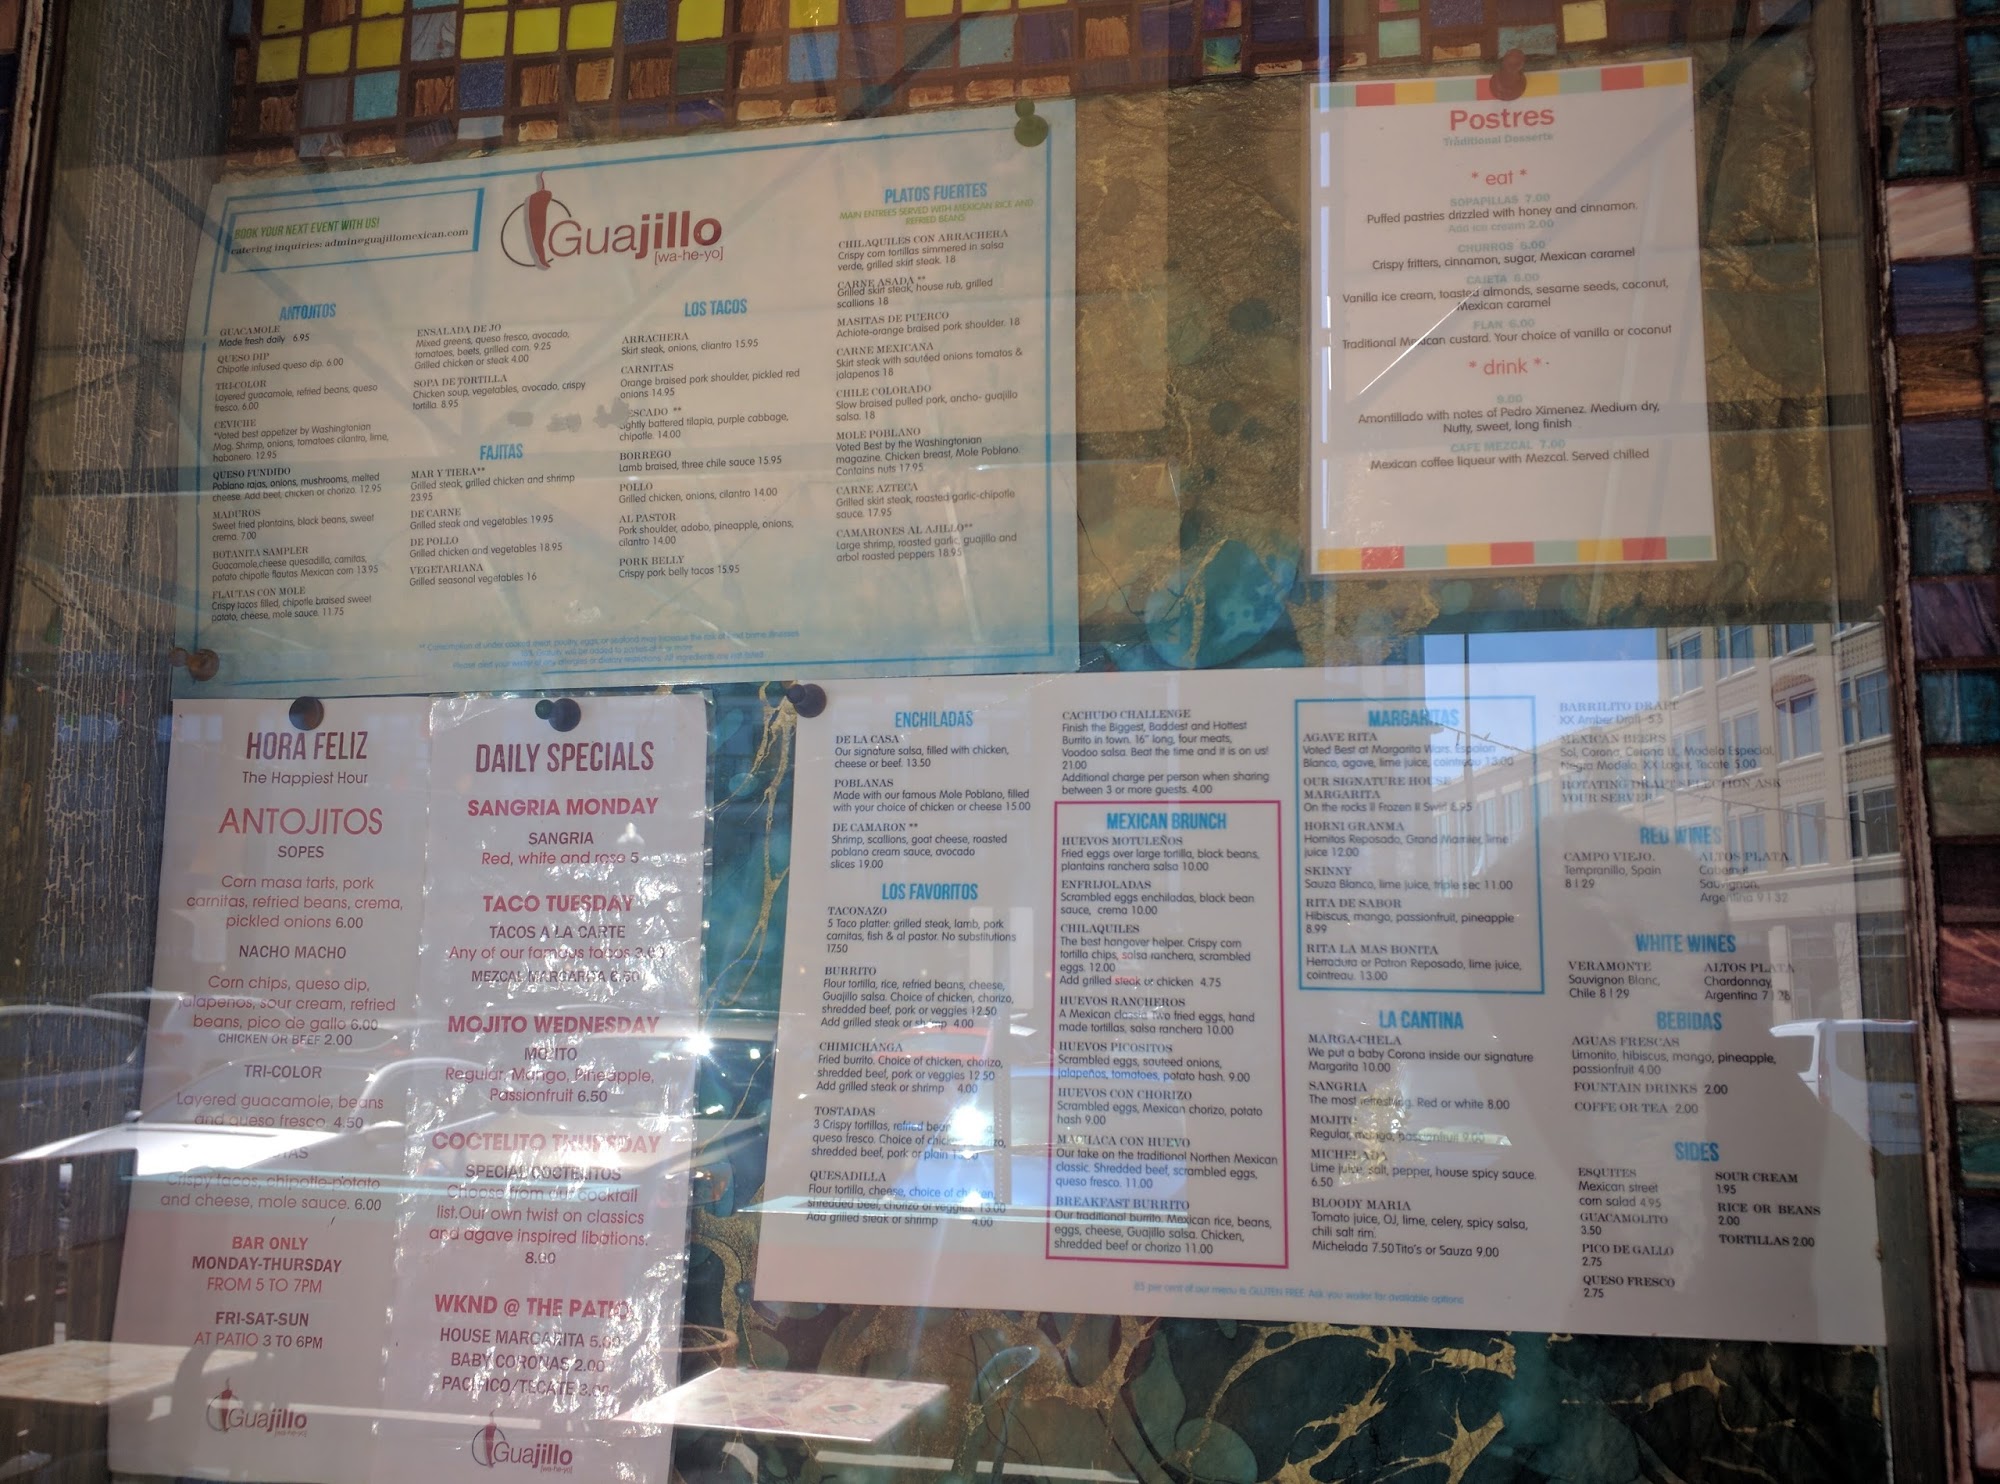 BOOK YOUR NEXT EVENT WITH US!
catering inquiries: admin@guajillomexican.com
Guajillo
[wa-he-yo]
ANTOJITOS
GUACAMOLE
Made fresh daily 6.95
QUESO DIP
Chipotle infused queso dip. 6.00
TRI-COLOR
Layered guacamole, refried beans, queso
fresco. 6.00
CEVICHE
*Voted best appetizer by Washingtonian
Mag. Shrimp, onions, tomatoes cilantro, lime,
habanero. 12.95
QUESO FUNDIDO
Poblano rajas, onions, mushrooms, melted
cheese. Add beef, chicken or chorizo. 12.95
MADUROS
Sweet fried plantains, black beans, sweet
crema. 7.00
BOTANITA SAMPLER
Guacamole,cheese quesadilla, carnitas,
potato chipotle flautas Mexican corn 13.95
FLAUTAS CON MOLE
Crispy tacos filled, chipotle braised sweet
potato, cheese, mole sauce. 11.75
ENSALADA DE JO
Mixed greens, queso fresco, avocado,
tomatoes, beets, grilled corn. 9.25
Grilled chicken or steak 4.00
SOPA DE TORTILLA
Chicken soup, vegetables, avocado, crispy
tortilla. 8.95
FAJITAS
MAR Y TIERA**
Grilled steak, grilled chicken and shrimp
23.95
DE CARNE
Grilled steak and vegetables 19.95
DE POLLO
Grilled chicken and vegetables 18.95
VEGETARIANA
Grilled seasonal vegetables 16
LOS TACOS
ARRACHERA
Skirt steak, onions, cilantro 15.95
CARNITAS
Orange braised pork shoulder, pickled red
onions 14.95
ESCADO **
ightly battered tilapia, purple cabbage,
chipotle. 14.00
BORREGO
Lamb braised, three chile sauce 15.95
POLLO
Grilled chicken, onions, cilantro 14.00
AL PASTOR
Pork shoulder, adobo, pineapple, onions,
cilantro 14.00
PORK BELLY
Crispy pork belly tacos 15.95
PLATOS FUERTES
MAIN ENTREES SERVED WITH MEXICAN RICE AND
REFRIED BEANS
CHILAQUILES CON ARRACHERA
Crispy corn tortillas simmered in salsa
verde, grilled skirt steak. 18
CARNE ASADA **
Grilled skirt steak, house rub, grilled
scallions 18
MASITAS DE PUERCO
Achiote-orange braised pork shoulder. 18
CARNE MEXICANA
Skirt steak with sautéed onions tomatos &
jalapenos 18
CHILE COLORADO
Slow braised pulled pork, ancho- guajillo
salsa. 18
MOLE POBLANO
Voted Best by the Washingtonian
magazine. Chicken breast, Mole Poblano.
Contains nuts 17.95
CARNE AZTECA
Grilled skirt steak, roasted garlic-chipotle
sauce. 17.95
CAMARONES AL AJILLO**
Large shrimp, roasted garlic, guajillo and
arbol roasted peppers 18.95
Postres
Traditional Desserts
* eat *
SOPAPILLAS 7.00
Puffed pastries drizzled with honey and cinnamon.
Add ice cream 2.00
CHURROS 5.00
Crispy fritters, cinnamon, sugar, Mexican caramel
CAJETA 6.00
Vanilla ice cream, toasted almonds, sesame seeds, coconut,
Mexican caramel
FLAN 6.00
Traditional Mexican custard. Your choice of vanilla or coconut
* drink *
9.00
Amontillado with notes of Pedro Ximenez. Medium dry,
Nutty, sweet, long finish
CAFE MEZCAL 7.00
Mexican coffee liqueur with Mezcal. Served chilled
HORA FELIZ
The Happiest Hour
ANTOJITOS
SOPES
Corn masa tarts, pork
carnitas, refried beans, crema,
pickled onions 6.00
NACHO MACHO
Corn chips, queso dip,
jalapeños, sour cream, refried
beans, pico de gallo 6.00
CHICKEN OR BEEF 2.00
TRI-COLOR
Layered guacamole, beans
and queso fresco. 4.50
Crispy tacos, chipotle-potato
and cheese, mole sauce. 6.00
BAR ONLY
MONDAY-THURSDAY
FROM 5 TO 7PM
FRI-SAT-SUN
AT PATIO 3 TO 6PM
Guajillo
[wa-he-yo]
DAILY SPECIALS
SANGRIA MONDAY
SANGRIA
Red, white and rose 5
TACO TUESDAY
TACOS A LA CARTE
Any of our famous tacos 3.00
MEZCAL MARGARITA 6.50
MOJITO WEDNESDAY
MOJITO
Regular, Mango, Pineapple,
Passionfruit 6.50
COCTELITO THURSDAY
SPECIAL COCTELITOS
Choose from our cocktail
list.Our own twist on classics
and agave inspired libations.
8.00
WKND @ THE PATIO
HOUSE MARGARITA 5.00
BABY CORONAS 2.00
PACIFICO/TECATE 3.00
Guajillo
[wa-he-yo]
ENCHILADAS
DE LA CASA
Our signature salsa, filled with chicken,
cheese or beef. 13.50
POBLANAS
Made with our famous Mole Poblano, filled
with your choice of chicken or cheese 15.00
DE CAMARON **
Shrimp, scallions, goat cheese, roasted
poblano cream sauce, avocado
slices 19.00
LOS FAVORITOS
TACONAZO
5 Taco platter: grilled steak, lamb, pork
carnitas, fish & al pastor. No substitutions
17.50
BURRITO
Flour tortilla, rice, refried beans, cheese,
Guajillo salsa. Choice of chicken, chorizo,
shredded beef, pork or veggies 12.50
Add grilled steak or shrimp 4.00
CHIMICHANGA
Fried burrito. Choice of chicken, chorizo,
shredded beef, pork or veggies 12.50
Add grilled steak or shrimp 4.00
TOSTADAS
3 Crispy tortillas, refried beans,
queso fresco. Choice of chicken, chorizo,
shredded beef, pork or plain
QUESADILLA
Flour tortilla, cheese, choice of chicken,
shredded beef, chorizo or veggies. 13.00
Add grilled steak or shrimp 4.00
CACHUDO CHALLENGE
Finish the Biggest, Baddest and Hottest
Burrito in town. 16" long, four meats,
Voodoo salsa. Beat the time and it is on us!
21.00
Additional charge per person when sharing
between 3 or more guests. 4.00
MEXICAN BRUNCH
HUEVOS MOTULEÑOS
Fried eggs over large tortilla, black beans,
plantains ranchera salsa 10.00
ENFRIJOLADAS
Scrambled eggs enchiladas, black bean
sauce, crema 10.00
CHILAQUILES
The best hangover helper. Crispy corn
tortilla chips, salsa ranchera, scrambled
eggs. 12.00
Add grilled steak or chicken 4.75
HUEVOS RANCHEROS
A Mexican classic. Two fried eggs, hand
made tortillas, salsa ranchera 10.00
HUEVOS PICOSITOS
Scrambled eggs, sauteed onions,
jalapeños, tomatoes, potato hash. 9.00
HUEVOS CON CHORIZO
Scrambled eggs, Mexican chorizo, potato
hash 9.00
MACHACA CON HUEVO
Our take on the traditional Northen Mexican
classic. Shredded beef, scrambled eggs,
queso fresco. 11.00
BREAKFAST BURRITO
Our traditional burrito. Mexican rice, beans,
eggs, cheese, Guajillo salsa. Chicken,
shredded beef or chorizo 11.00
MARGARITAS
AGAVE RITA
Voted Best at Margarita Wars. Espolon
Blanco, agave, lime juice, cointreau 13.00
OUR SIGNATURE HOUSE
MARGARITA
On the rocks II Frozen II Swirl 8.95
HORNI GRANMA
Hornitos Reposado, Grand Marnier, lime
juice 12.00
SKINNY
Sauza Blanco, lime juice, triple sec 11.00
RITA DE SABOR
Hibiscus, mango, passionfruit, pineapple
8.99
RITA LA MAS BONITA
Herradura or Patron Reposado, lime juice,
cointreau. 13.00
LA CANTINA
MARGA-CHELA
We put a baby Corona inside our signature
Margarita 10.00
SANGRIA
The most refreshing. Red or white 8.00
MOJITO
Regular, mango, passionfruit 9.00
MICHELADA
Lime juice, salt, pepper, house spicy sauce.
6.50
BLOODY MARIA
Tomato juice, OJ, lime, celery, spicy salsa,
chili salt rim.
Michelada 7.50 Tito's or Sauza 9.00
BARRILITO DRAFT
XX Amber Draft 5.5
MEXICAN BEERS
Sol, Corona, Corona L., Modelo Especial,
Negra Modelo, XX Lager, Tecate 5.00
ROTATING DRAFT SELECTION ASK
YOUR SERVER
RED WINES
CAMPO VIEJO.
Tempranillo, Spain
8 I 29
ALTOS PLATA.
Cabernet
Sauvignon,
Argentina 9 I 32
WHITE WINES
VERAMONTE
Sauvignon Blanc,
Chile 8 I 29
ALTOS PLATA
Chardonnay,
Argentina 7 I 28
BEBIDAS
AGUAS FRESCAS
Limonito, hibiscus, mango, pineapple,
passionfruit 4.00
FOUNTAIN DRINKS 2.00
COFFE OR TEA 2.00
SIDES
ESQUITES
Mexican street
corn salad 4.95
GUACAMOLITO
3.50
PICO DE GALLO
2.75
QUESO FRESCO
2.75
SOUR CREAM
1.95
RICE OR BEANS
2.00
TORTILLAS 2.00
85 per cent of our menu is GLUTEN FREE. Ask you waiter for available options